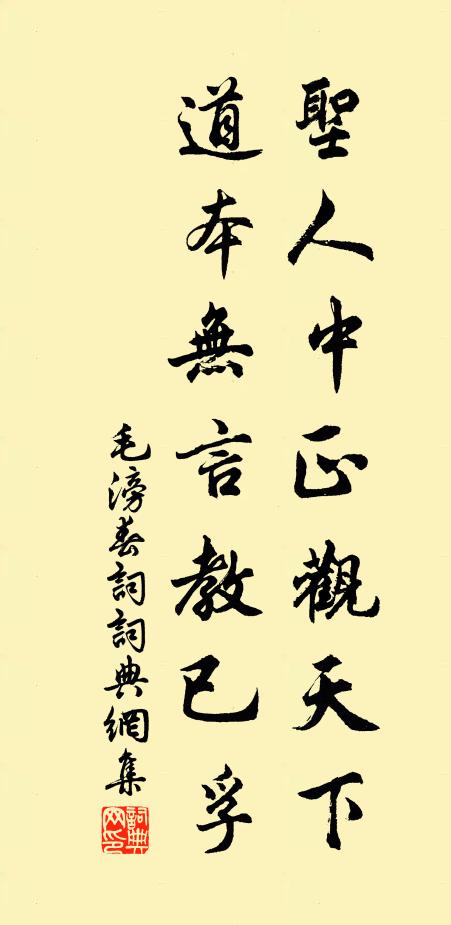 聖人中正觀天下
道本無言教已孚
毛滂春詞詞典網集
詞典
网印